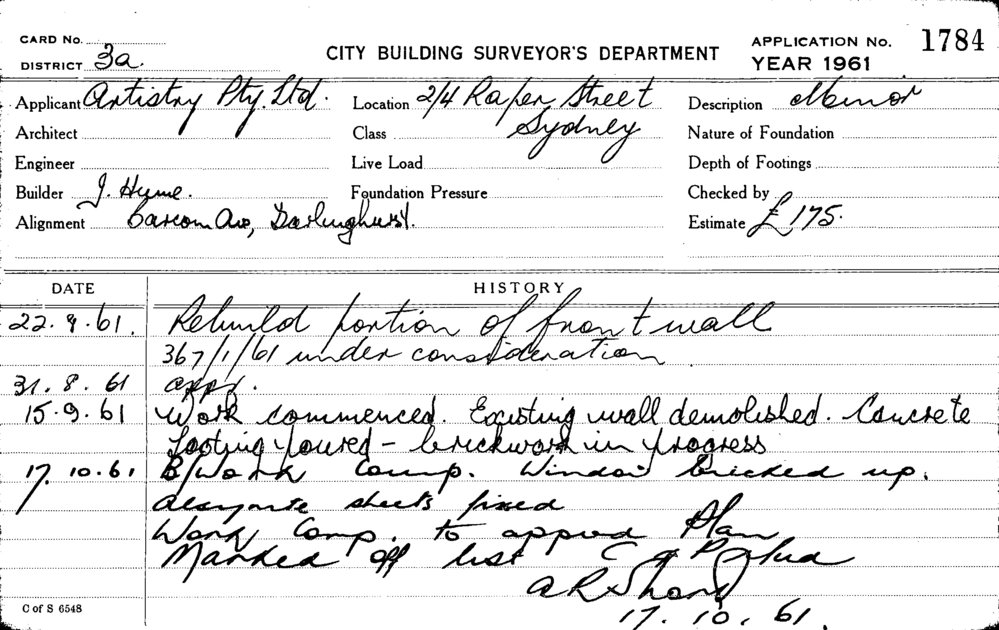 CARD No.
CITY BUILDING SURVEYOR'S DEPARTMENT
APPLICATION No. 1784
DISTRICT 3a.
YEAR 1961
Applicant Artistry Pty. Ltd. Location 2/4 Raper Street Description Minor
Architect Class Sydney Nature of Foundation
Engineer Live Load Depth of Footings
Builder J. Hume. Foundation Pressure Checked by
Alignment Barcom Ave, Darlinghurst. Estimate £175.
DATE HISTORY
22.9.61. Rebuild portion of front wall
367/1/61 under consideration
31.8.61 appd.
15.9.61 Work commenced. Existing wall demolished. Concrete
footing poured - brickwork in progress
17.10.61 B/Work Comp. Window bricked up.
Alsynite sheets fixed
Work Comp. to approved Plan
Marked off list
17.10.61.
C of S 6548